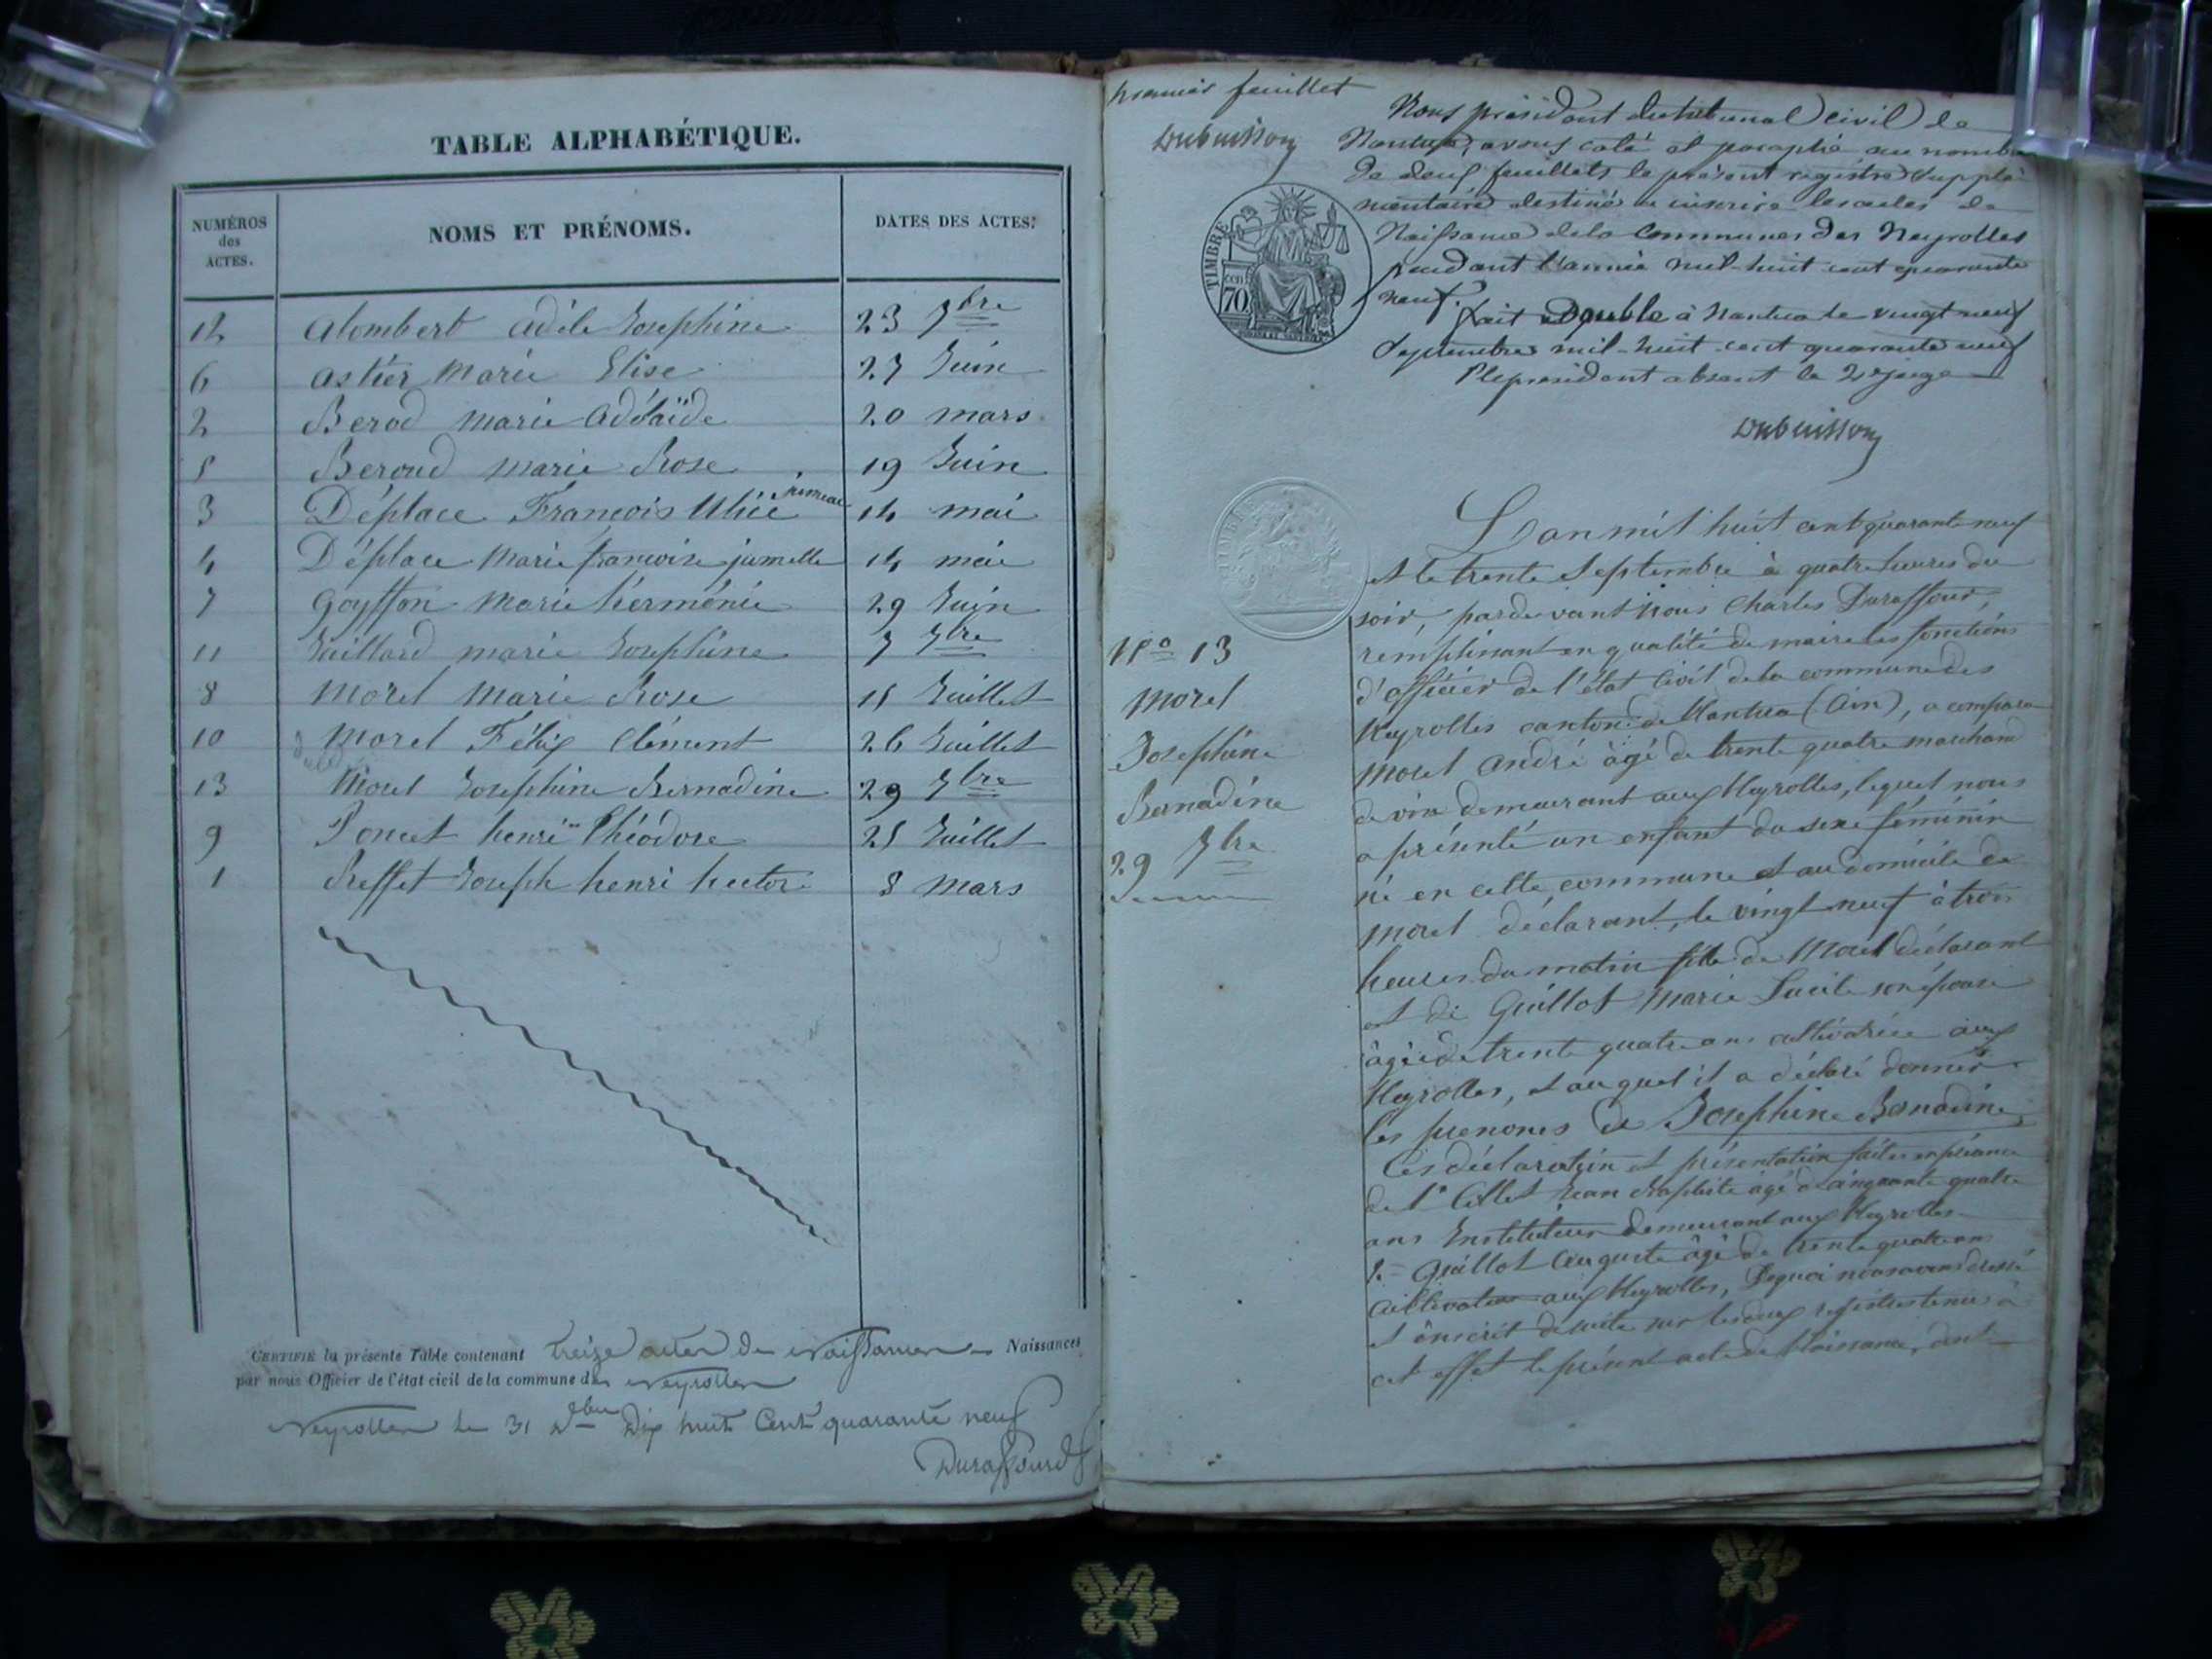 TABLE ALPHABÉTIQUE.
NUMÉROS
des
ACTES.
NOMS ET PRÉNOMS.
DATES DES ACTES.
12 Alombert Adèle Josephine 23 7bre
6 Astier Marie Elise 27 Juin
2 Berod Marie Adélaïde 20 mars
5 Beroud Marie Rose 19 Juin
3 Déplace François Ulice jumeau 14 mai
4 Déplace Marie françoise jumelle 14 mai
7 Goyffon Marie herménie 29 Juin
11 Jaillard marie Josephine 7 7bre
8 Morel Marie Rose 15 Juillet
10 Morel Félix Clément 26 Juillet
13 Morel Josephine Bernadine 29 7bre
9 Poncet henri Théodore 25 Juillet
1 Reffet Joseph henri hector 8 Mars
CERTIFIÉ la présente Table contenant treize actes de Naissances Naissances
par nous Officier de l'état civil de la commune des Neyrolles
Neyrolles le 31 Dbre Dix huit Cent quarante neuf
Duraffourd
premier feuillet
Dubuisson
Nous président du tribunal civil de
Nantua, avons coté et paraphé au nombre
de deux feuillets le présent registre supplé
mentaire destiné à inscrire les actes de
Naissance de la Communes des Neyrolles
pendant l'année mil-huit cent quarante
neuf.
fait Double à Nantua le vingt neuf
Septembre mil-huit-cent quarante neuf
P le président absent le 2e juge
Dubuisson
TIMBRE
70
L'an mil huit cent quarante neuf
et le trente Septembre à quatre heures du
soir, pardevant nous Charles Duraffour,
remplissant en qualité de maire les fonctions
d'officier de l'état Civil de la commune des
Neyrolles canton de Nantua (Ain), a comparu
Morel André âgé de trente quatre marchand
de vin demeurant aux Neyrolles, lequel nous
a présenté un enfant du sexe féminin
né en cette commune et au domicile de
Morel déclarant, le vingt neuf à trois
heures du matin fille de Morel déclarant
et de Guillot Marie Lucile son épouse
âgée de trente quatre ans cultivatrice aux
Neyrolles, et auquel il a déclaré donner
les prenoms de Josephine Bernadine
Ces déclaration et présentation faites en présence
de 1° Collet Jean Baptiste âgé de cinquante quatre
ans Instituteur demeurant aux Neyrolles
2° Guillot Auguste âgé de trente quatre ans
Cultivateur aux Neyrolles, De quoi nous avons dressé
et inscrit de suite sur les deux registres tenus à
cet effet le présent acte de Naissance, dont
No 13
Morel
Josephine
Bernadine
29 7bre